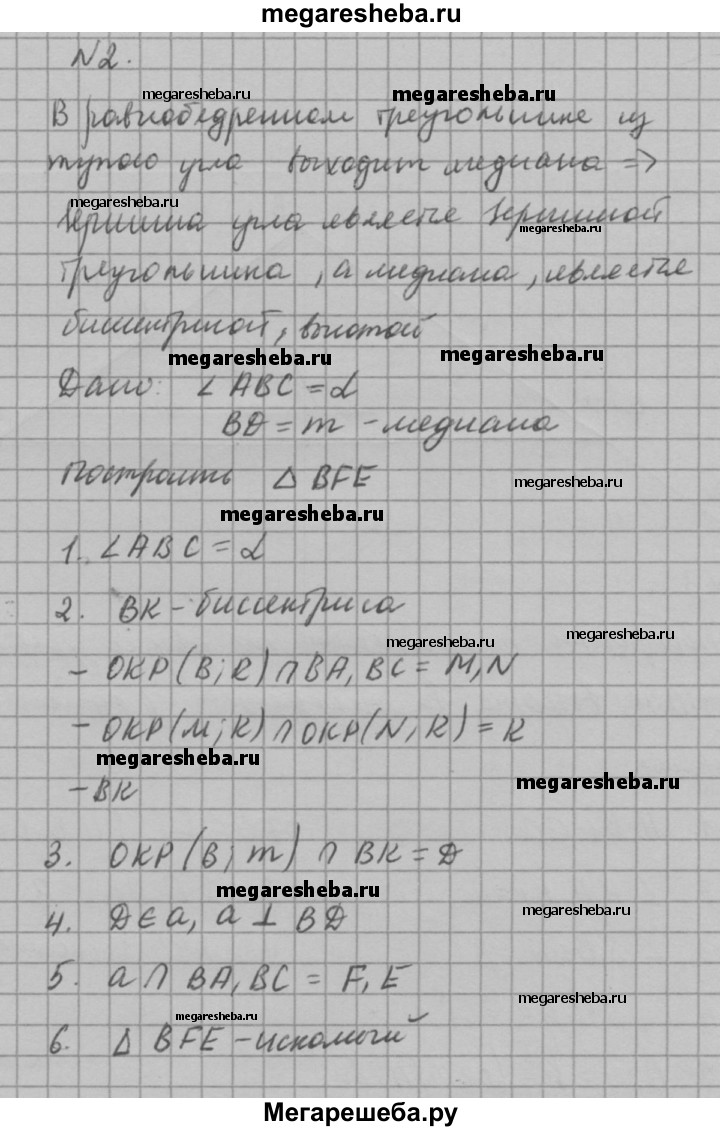 megaresheba.ru
N2.
megaresheba.ru megaresheba.ru
В равнобедренном треугольнике из
тупого угла выходит медиана =>
megaresheba.ru
вершина угла является вершиной
megaresheba.ru
треугольника, а медиана, является
биссектрисой, высотой
megaresheba.ru megaresheba.ru
Дано: ∠ABC = α
BD = m - медиана
Построить Δ BFE
megaresheba.ru
megaresheba.ru
1. ∠ABC = α
2. BK - биссектриса
megaresheba.ru
megaresheba.ru
- ОКР(B; R) ∩ BA, BC = M, N
- ОКР(M; R) ∩ ОКР(N; R) = K
megaresheba.ru
- BK
megaresheba.ru
3. ОКР(B; m) ∩ BK = D
megaresheba.ru
4. D ∈ a, a ⊥ BD
megaresheba.ru
5. a ∩ BA, BC = F, E
megaresheba.ru
megaresheba.ru
6. Δ BFE - искомый
Мегарешеба.ру